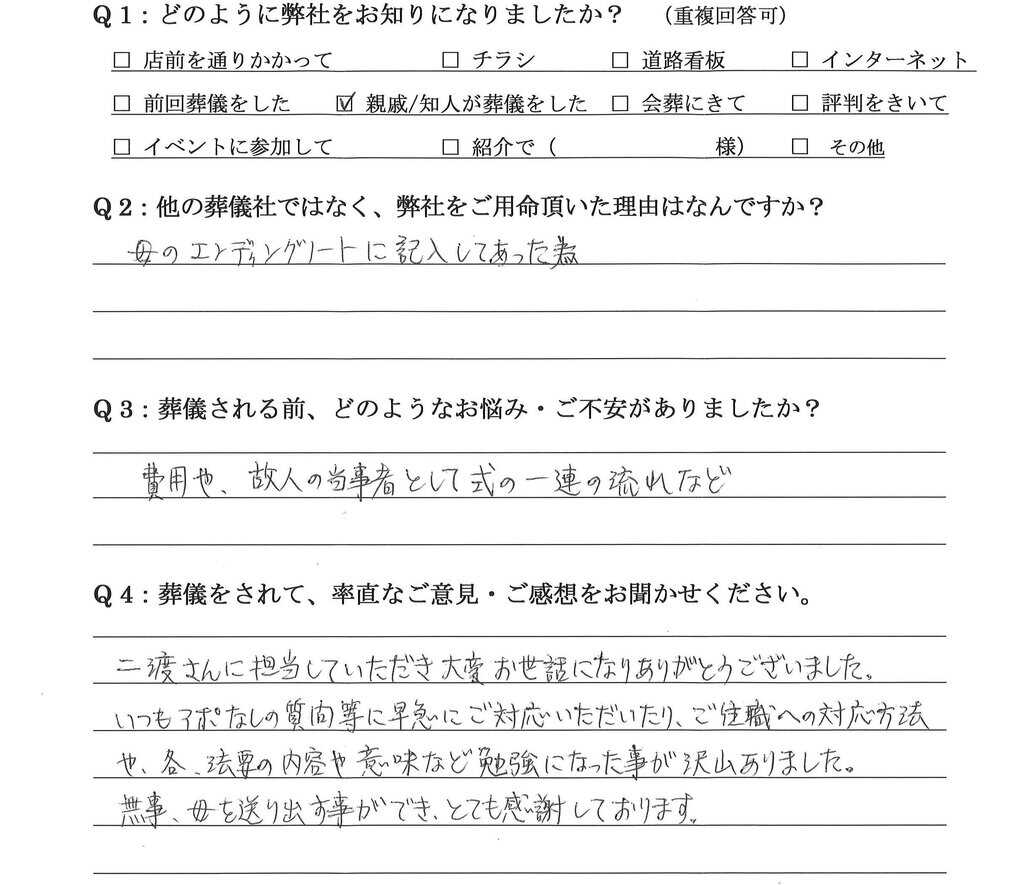 Q1：どのように弊社をお知りになりましたか？ （重複回答可）
□ 店前を通りかかって □ チラシ □ 道路看板 □ インターネット
□ 前回葬儀をした ☑ 親戚/知人が葬儀をした □ 会葬にきて □ 評判をきいて
□ イベントに参加して □ 紹介で（ 様） □ その他
Q2：他の葬儀社ではなく、弊社をご用命頂いた理由はなんですか？
母のエンディングノートに記入してあった為
Q3：葬儀される前、どのようなお悩み・ご不安がありましたか？
費用や、故人の当事者として式の一連の流れなど
Q4：葬儀をされて、率直なご意見・ご感想をお聞かせください。
二渡さんに担当していただき大変お世話になりありがとうございました。
いつもアポなしの質問等に早急にご対応いただいたり、ご住職への対応方法
や、各、法要の内容や意味など勉強になった事が沢山ありました。
無事、母を送り出す事ができ、とても感謝しております。